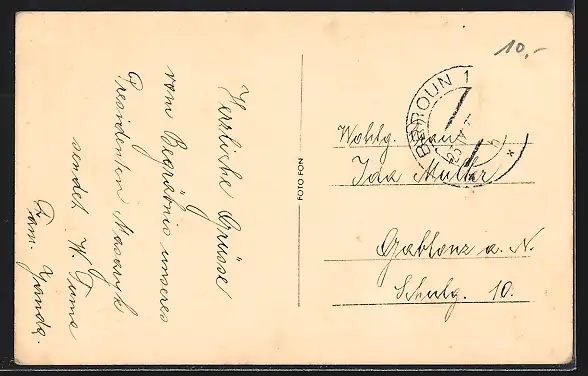 Herzliche Grüsse
vom Begräbnis unseres
Presidenten Masaryk
sendet W. Tuma
Fam. Janda.
FOTO FON
10,-
BEROUN 1
Wohlg. Frau
Ida Müller
Gablonz a. N.
Schulg. 10.